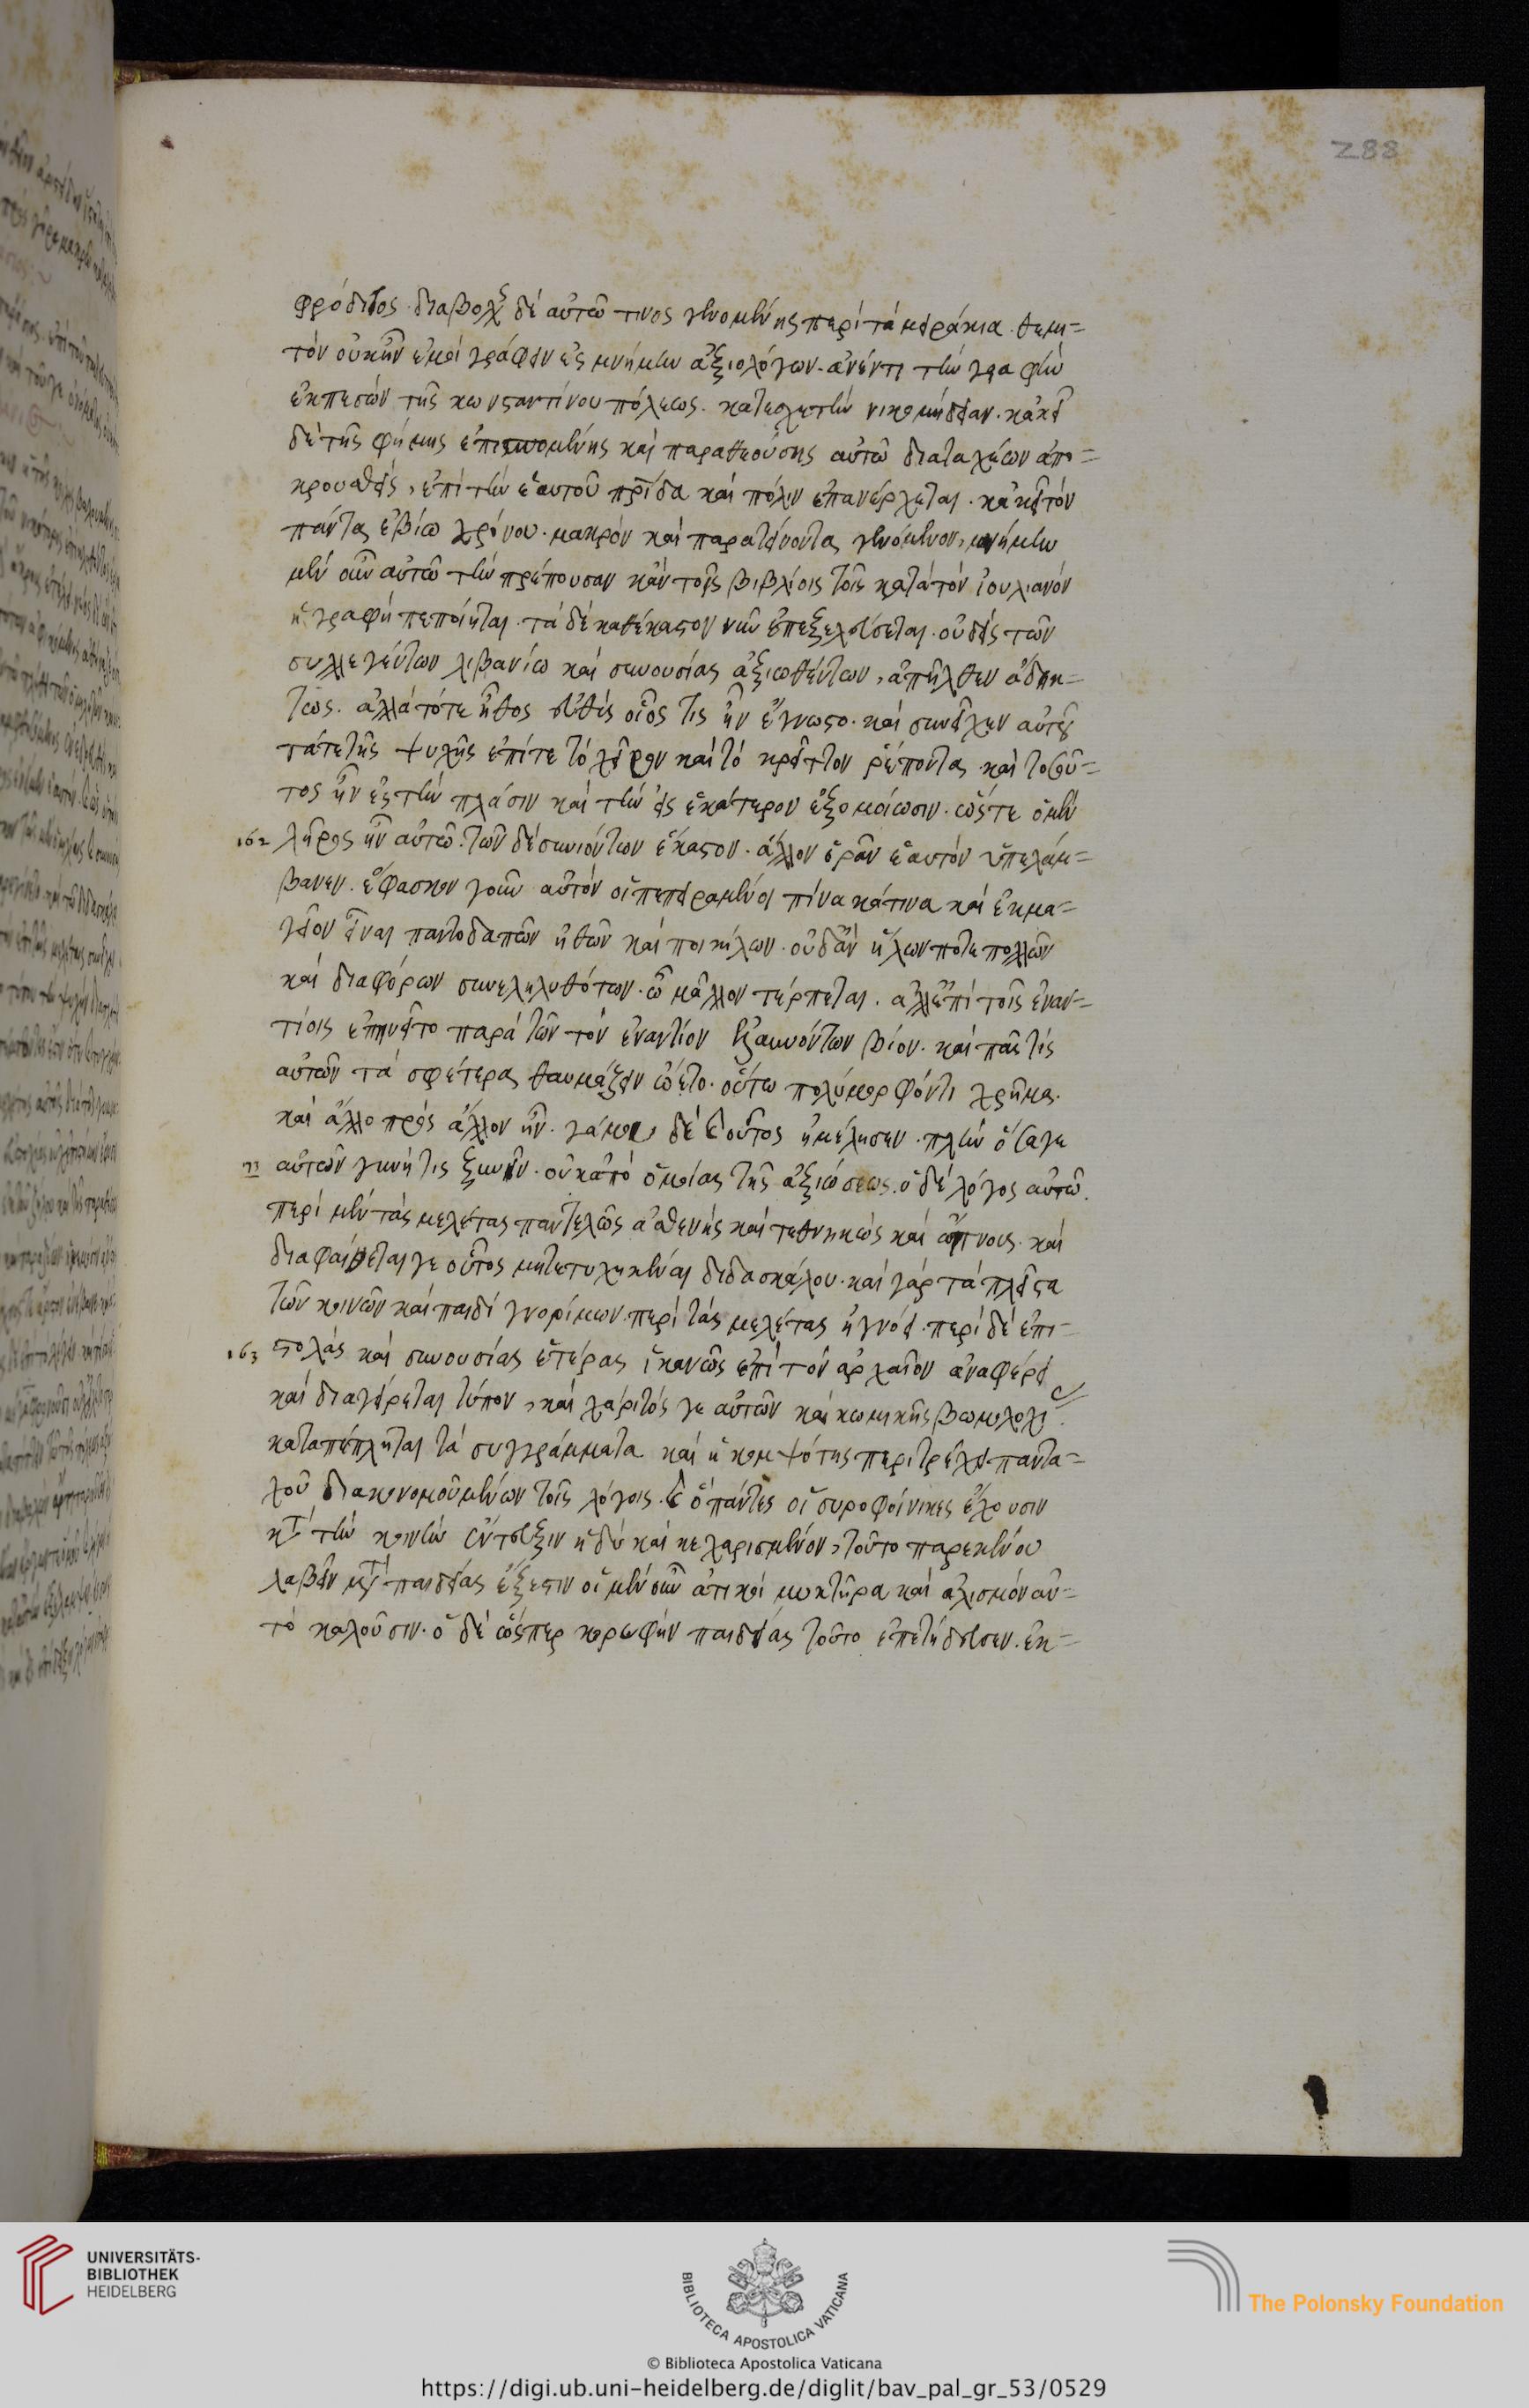 288
φρόδιτος. διαβολῆς δέ αὐτῶ τινος γενομένης περί τά μειράκια. θεμι=
τόν οὐκ ἦν ἐμοί γράφειν ἐς μνήμην ἀξιολόγων. ἀνέντι τήν γραφήν
ἐκπεσών τῆς κωνσταντίνου πόλεως. κατέσχε τήν νικομήδειαν. κἀκεῖ
δέ τῆς φήμης ἐπισπομένης καί παραθεούσης αὐτῶ διαταχέων ἀπο=
κρουσθείς, ἐπί τήν ἑαυτοῦ πρίδα καί πόλιν ἐπανέρχεται. κἀκεῖ τόν
πάντα ἐβίω χρόνον. μακρόν καί παρατείνοντα γενόμενον, μνήμην
μέν οὖν αὐτῶ τήν πρέπουσαν κἀν τοῖς βιβλίοις τοῖς κατά τόν ἰουλιανόν
ἡ γραφή πεποίηται. τά δέ καθέκαστον νῦν ἐπεξελεύσεται. οὐδείς τῶν
συλλεγέντων λιβανίω καί συνουσίας ἀξιωθέντων, ἀπῆλθεν ἄδηκ=
τος. ἀλλά τότε ἦθος εὐθύς οἷός τις ἦν ἔγνωστο. καί συνεῖχεν αὐτοῦ
τάτε τῆς ψυχῆς ἐπί τε τό χεῖρον καί τό κρεῖττον ῥέποντα. καί τοσοῦ=
τος ἦν ἐς τήν πλάσιν καί τήν εἰς ἑκάτερον ἐξομοίωσιν. ὥστε ὁ μέν
162 λῆρος ἦν αὐτῶ. τῶν δέ συνιόντων ἕκαστον. ἄλλον ὁρᾶν ἑαυτόν ὑπελάμ=
βανεν. ἔφασκον γοῦν αὐτόν οἱ πεπειραμένοι πίνακά τινα καί ἐκμα=
γεῖον εἶναι παντοδαπῶν ἠθῶν καί ποικίλων. οὐδ' ἄν ἥλων ποτε πολλῶν
καί διαφόρων συνεληλυθότων. ὧ μᾶλλον τέρπεται. ἀλλ' ἐπί τοῖς ἐναν=
τίοις ἐπηνεῖτο παρά τῶν τόν ἐναντίον ἐξαινόντων βίον. καί πᾶς τις
αὐτῶν τά σφέτερα θαυμάζειν ὤετο. οὕτω πολύμορφόν τι χρῆμα.
καί ἄλλο πρός ἄλλον ἦν. γάμου δέ καί οὗτος ἠμέλησεν. πλήν ὅσα γε
αὐτῶν γυνή τις ξυνῆν. οὐκ ἀπό ὁμοίας τῆς ἀξιώσεως. ὁ δέ λόγος αὐτῶ.
περί μέν τάς μελέτας παντελῶς ἀσθενής καί τεθνηκώς καί ἄπνους. καί
διαφαίνεται γε οὗτος μή τετυχηκέναι διδασκάλου. καί γάρ τά πλεῖστα
τῶν κοινῶν καί παιδί γνορίμων. περί τάς μελέτας ἠγνόει. περί δέ ἐπι=
163 στολάς καί συνουσίας ἑτέρας ἱκανῶς ἐπί τόν ἀρχαῖον ἀναφέρει
καί διαγείρεται τύπον, καί χάριτός γε αὐτῶν καί κωμικῆς βωμολοχί
καταπέπληται τά συγγράμματα καί ἡ κομψότης περιτρέχει παντα=
χοῦ διακονομουμένων τοῖς λόγοις. καί ὅ πάντες οἱ συροφοίνικες ἔχουσιν
κτ τήν κοινήν ἔντευξιν ἡδύ καί κεχαρισμένον, τοῦτο παρ' ἐκείνου
λαβεῖν μτ παιδείας ἔξεστιν οἱ μέν οὖν ἀττικοί μυκτῆρα καί ἀστεϊσμόν αὐ=
τό καλοῦσιν. ὁ δέ ὥσπερ κορυφήν παιδείας τοῦτο ἐπετήδευσεν. ἐκ=
UNIVERSITÄTS-
BIBLIOTHEK
HEIDELBERG
BIBLIOTECA APOSTOLICA VATICANA
The Polonsky Foundation
© Biblioteca Apostolica Vaticana
https://digi.ub.uni-heidelberg.de/diglit/bav_pal_gr_53/0529